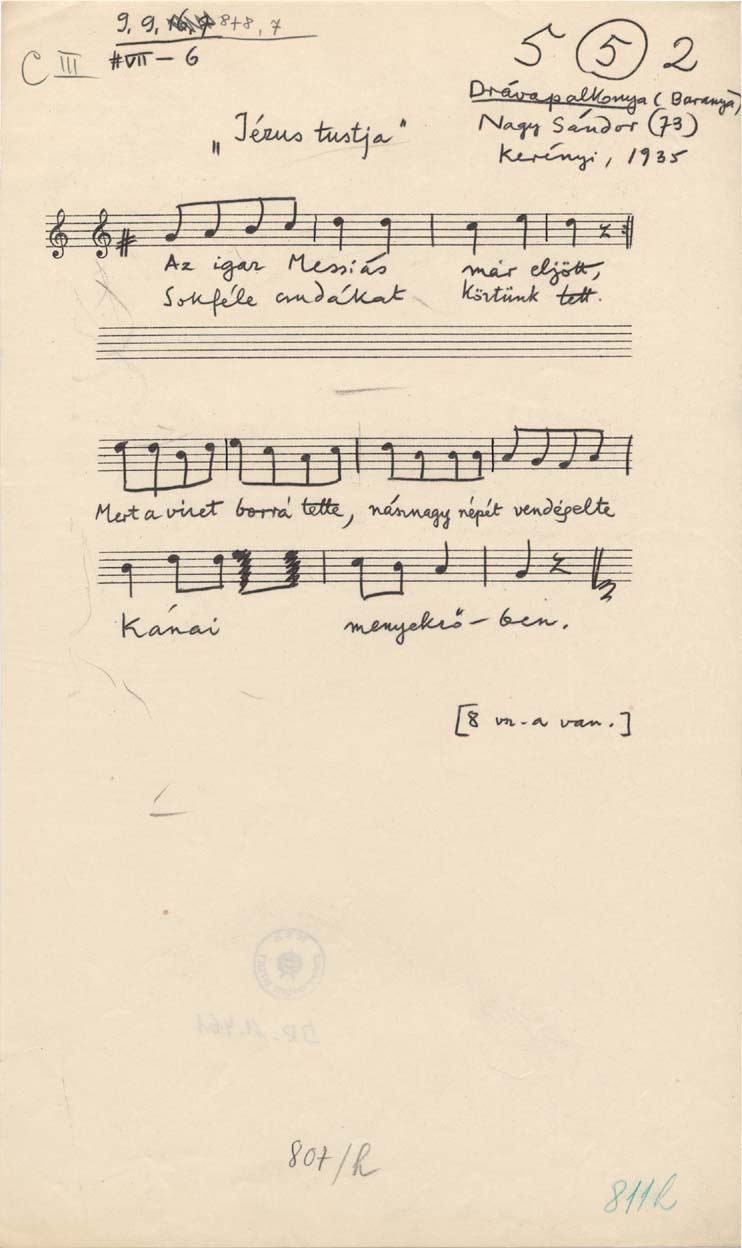 9, 9, 8+8, 7
C III #VII – 6
5 (5) 2
Drávapalkonya (Baranya)
Nagy Sándor (73)
Kerényi, 1935
„Jézus tustja"
Az igaz Messiás már eljött,
Sokféle csudákat köztünk tett.
Mert a vizet borrá tette, násznagy népét vendégelte
Kánai menyekző – ben.
[8 vsz-a van.]
807/h
811h